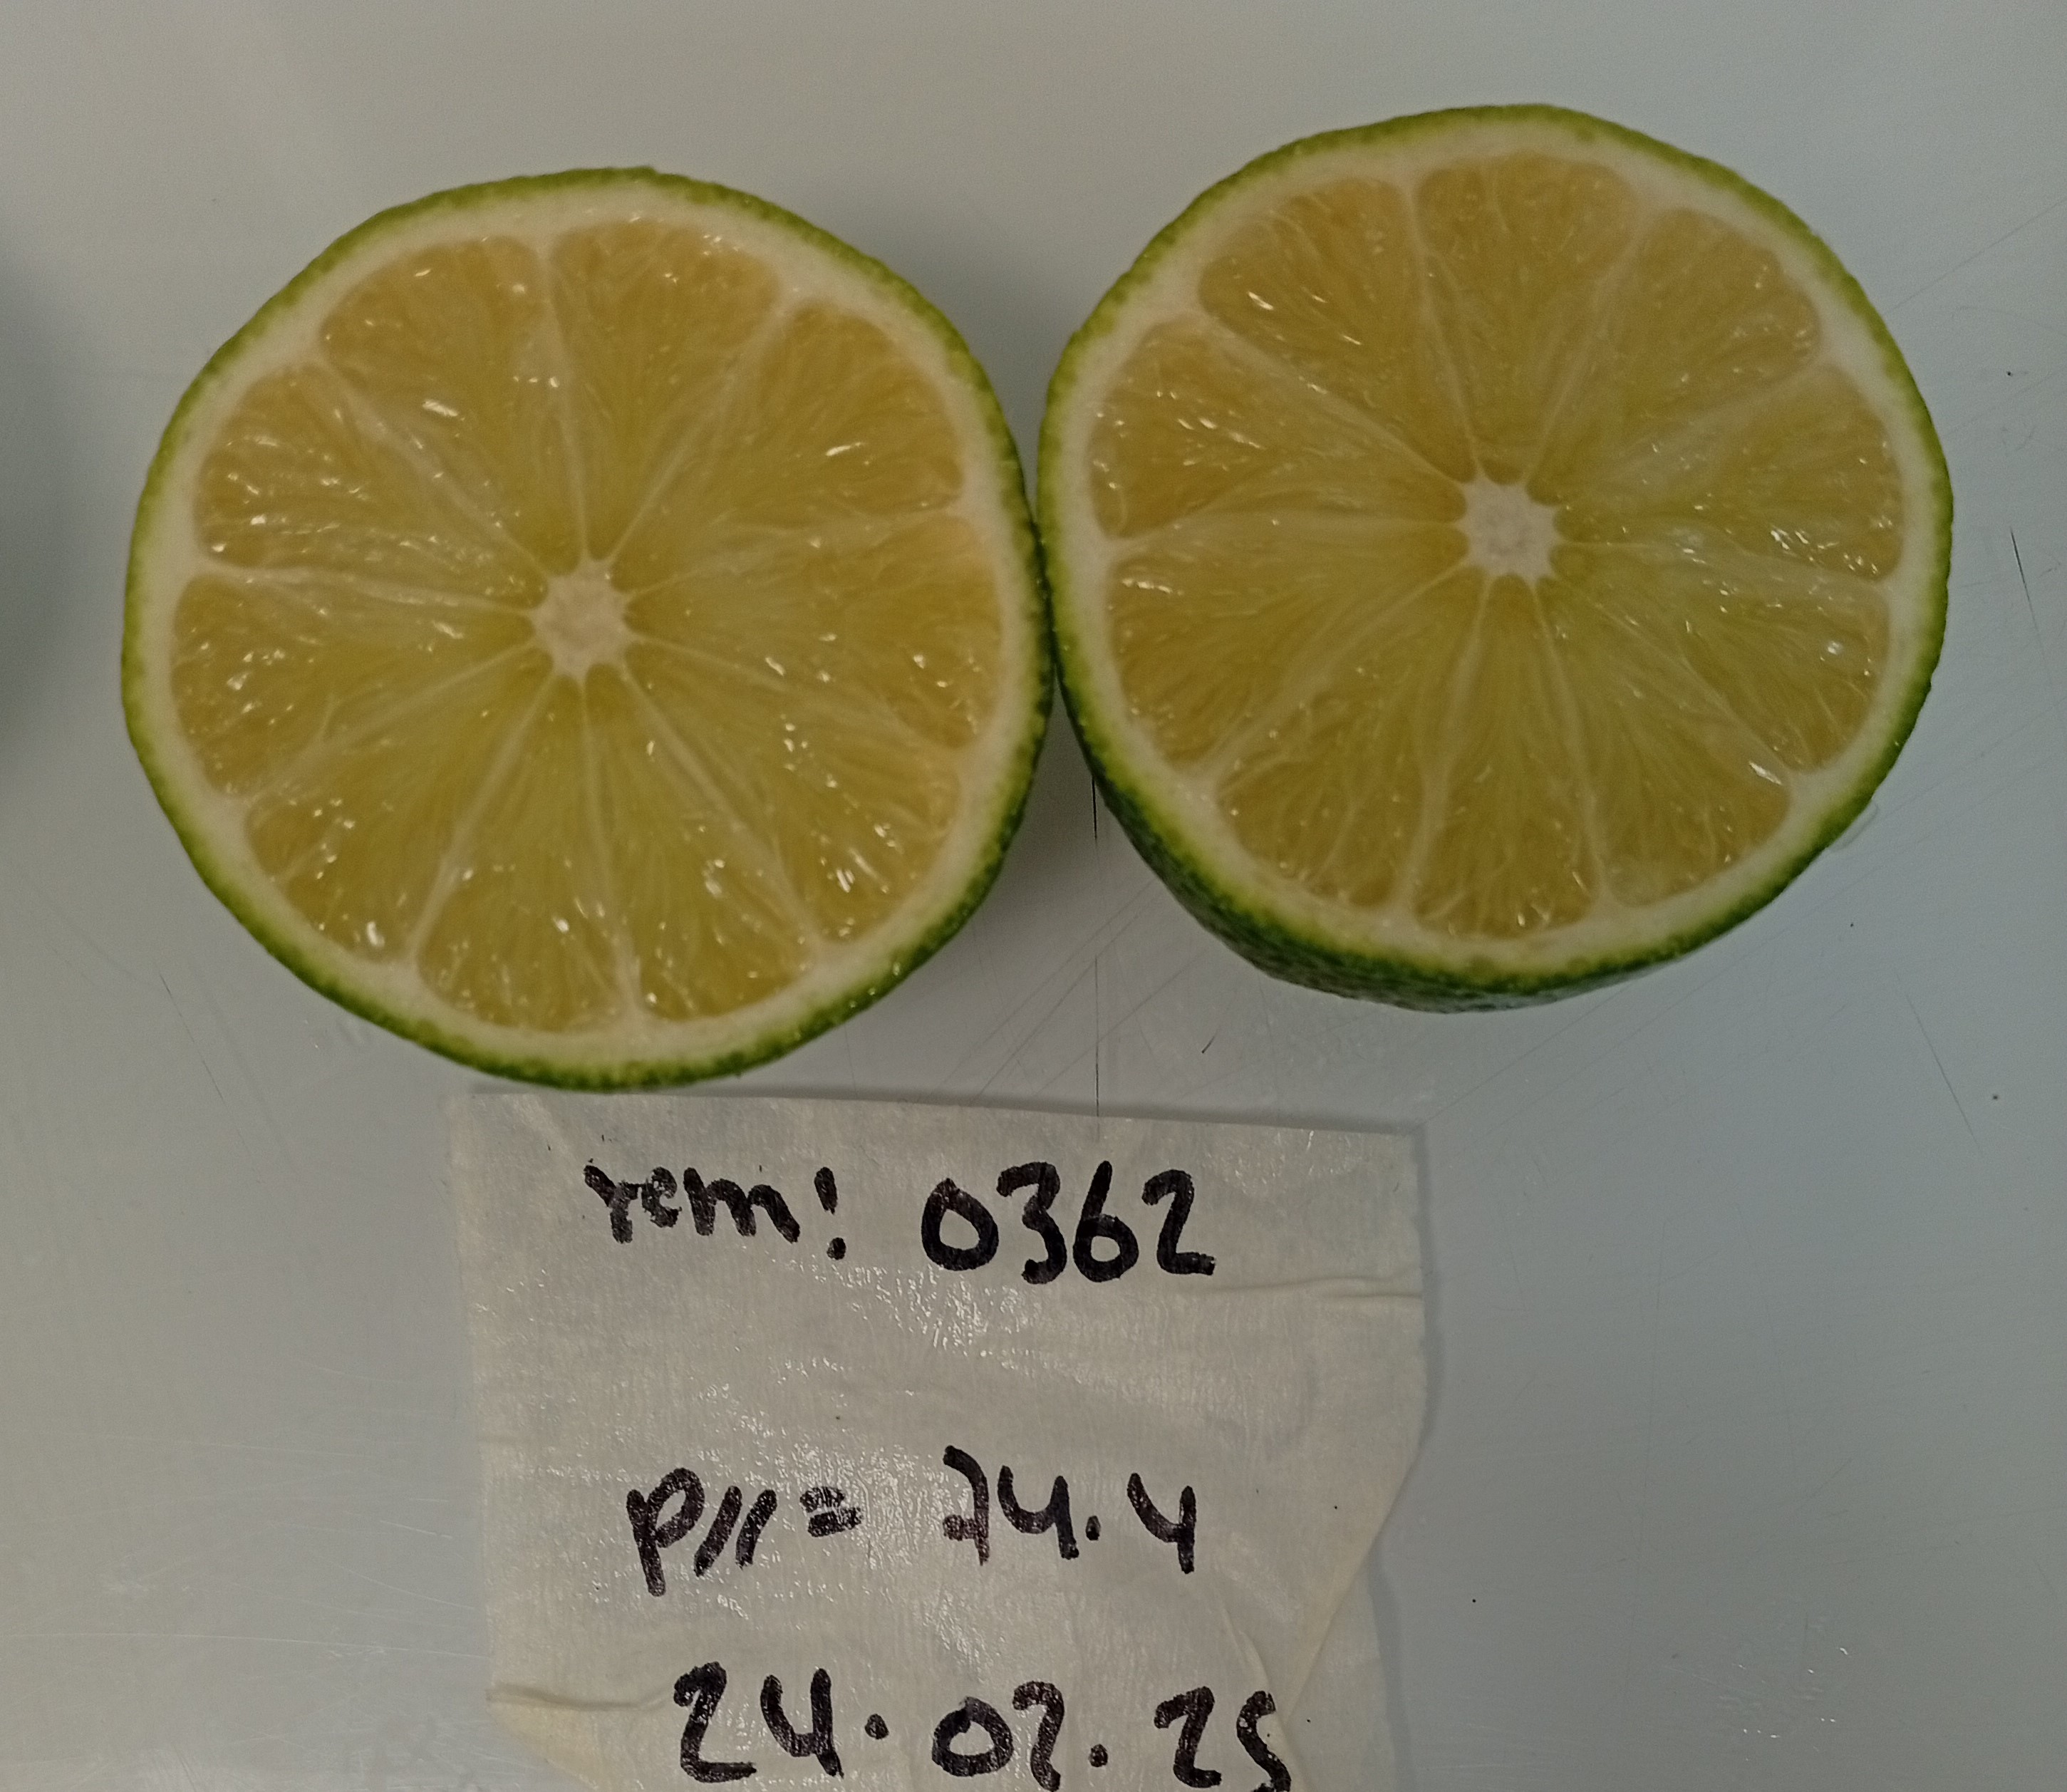 rem: 0362
P11= 74.4
24.02.25